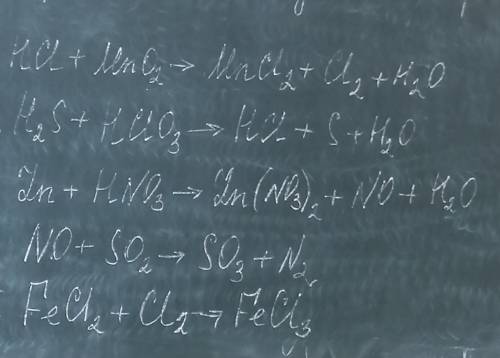 HCl + MnO₂ → MnCl₂ + Cl₂ + H₂O
H₂S + HClO₃ → HCl + S + H₂O
Zn + HNO₃ → Zn(NO₃)₂ + NO + H₂O
NO + SO₂ → SO₃ + N₂
FeCl₂ + Cl₂ → FeCl₃